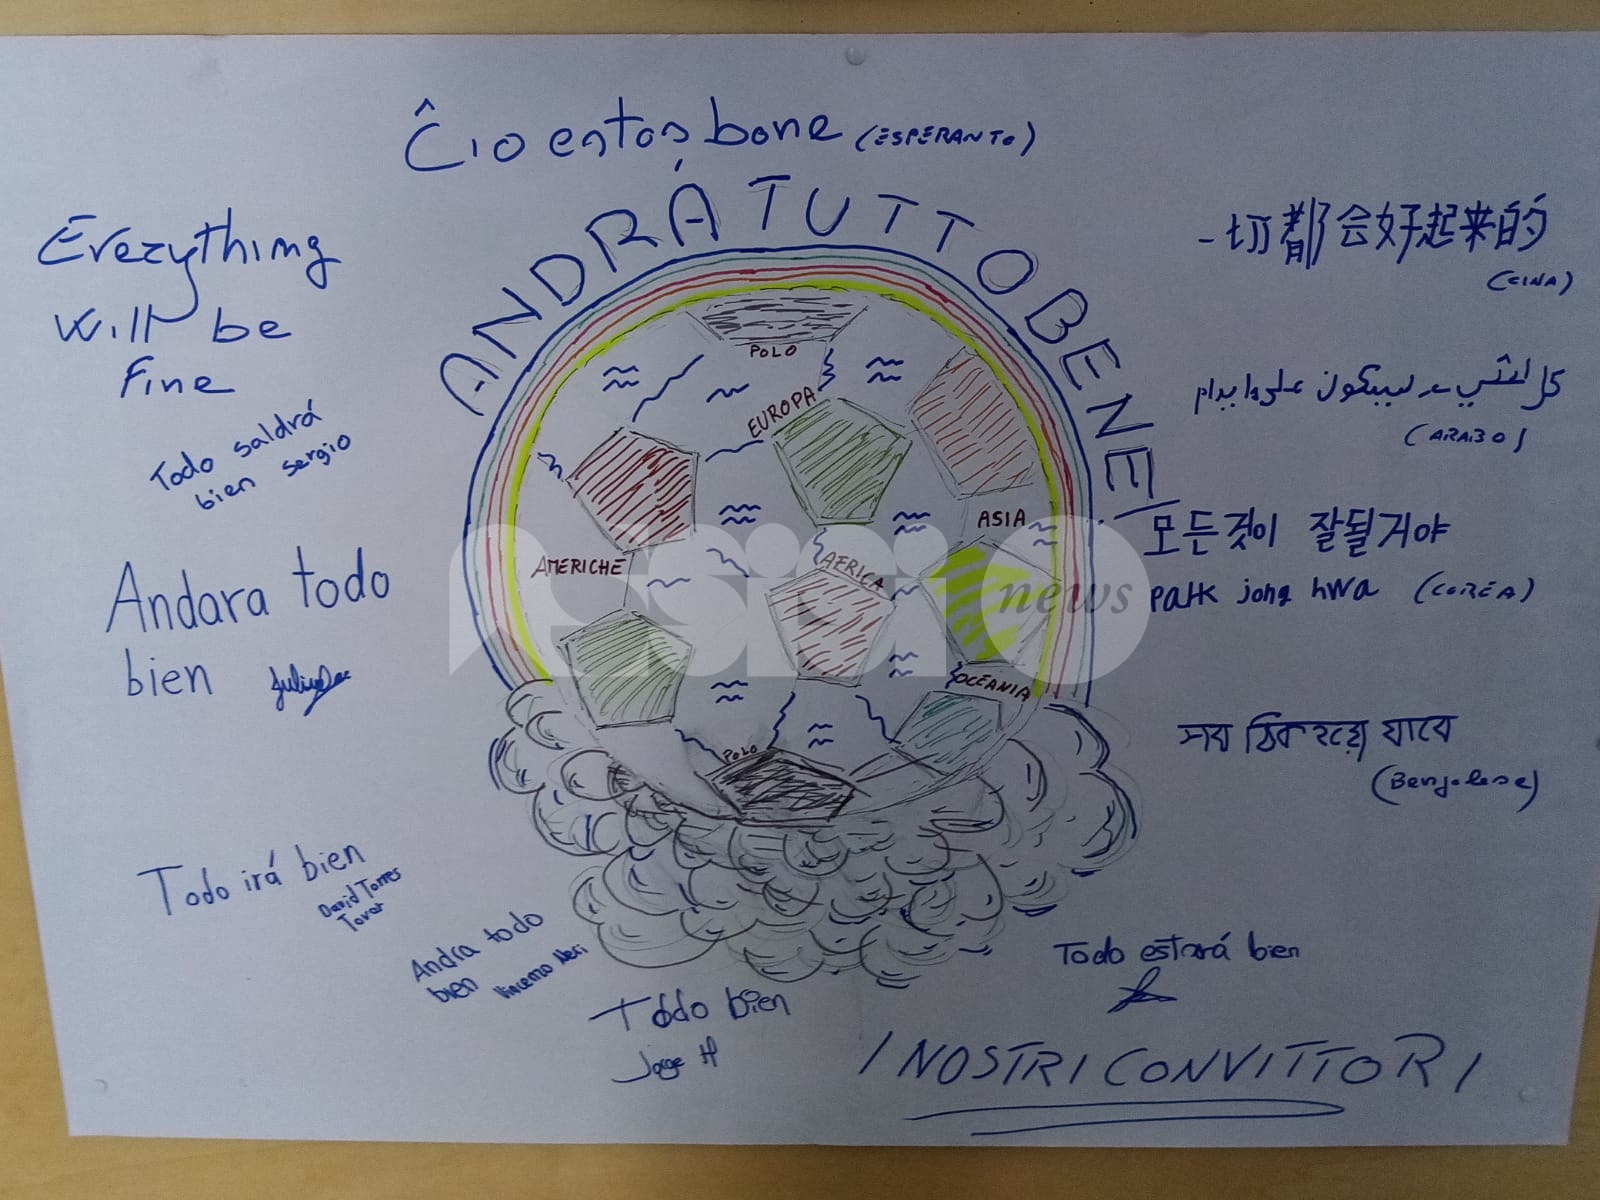 Ĉio estos bone (ESPERANTO)
ANDRÁ TUTTO BENE!
Everything
will be
fine
Todo saldrá
bien sergio
Andara todo
bien
一切都会好起来的
(CINA)
كل
(ARABO)
모든것이 잘될거야
park jong hwa (COREA)
সব ঠিক হয়ে যাবে
(Bengalese)
POLO
EUROPA
ASIA
AMERICHE
AFRICA
OCEANIA
POLO
ASSISI news
Todo irá bien
David Torres
Tovar
Andra todo
bien Vincenzo Neri
Todo bien
Jorge H
Todo estará bien
I NOSTRI CONVITTORI